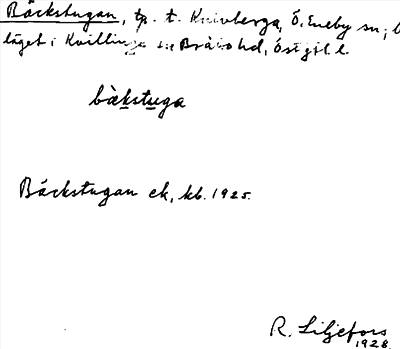 Bäckstugan, tp. t. Knivberga, Ö. Eneby sn; b
läget i Kvillinge sn Bråbo hd, Östgötl. l.
bäkstuga
Bäckstugan ek. kb. 1925.
R. Liljefors
1928.